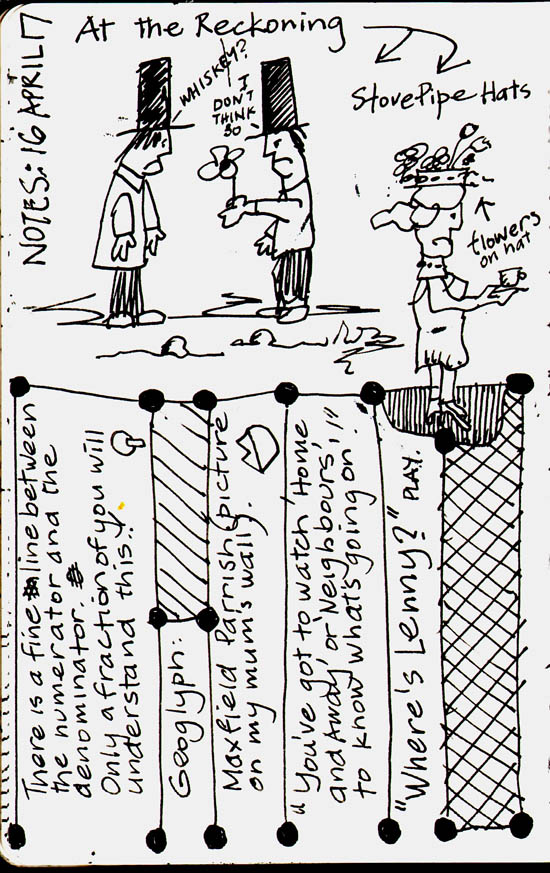 At the Reckoning
NOTES: 16 APRIL 17
WHISKEY?
I
DON'T
THINK
SO
StovePipe Hats
flowers
on hat
There is a fine line between
the numerator and the
denominator.
Only a fraction of you will
understand this..
Geoglyph.
Maxfield Parrish picture
on my mums wall.
"You've got to watch 'Home
and Away' or 'Neighbours'
to know what's going on!!"
"Where's Lenny?" PLAY.